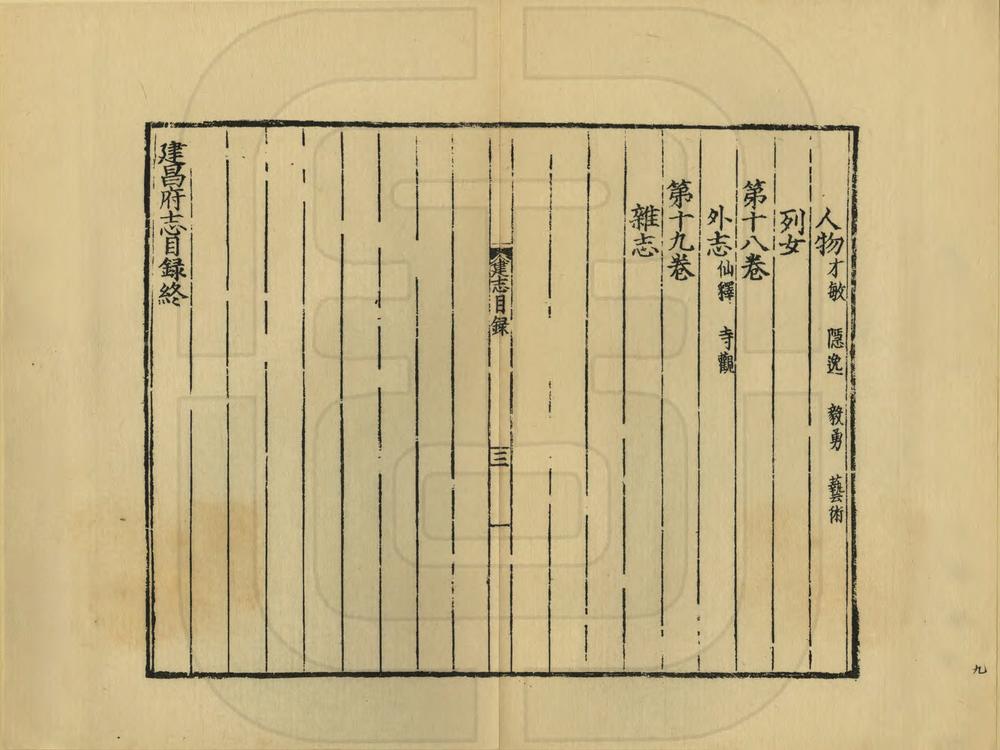 人物才敏　隱逸　毅勇　藝術
列女
第十八卷
外志仙釋　寺觀
第十九卷
雜志
建志目録
三
建昌府志目録終
九